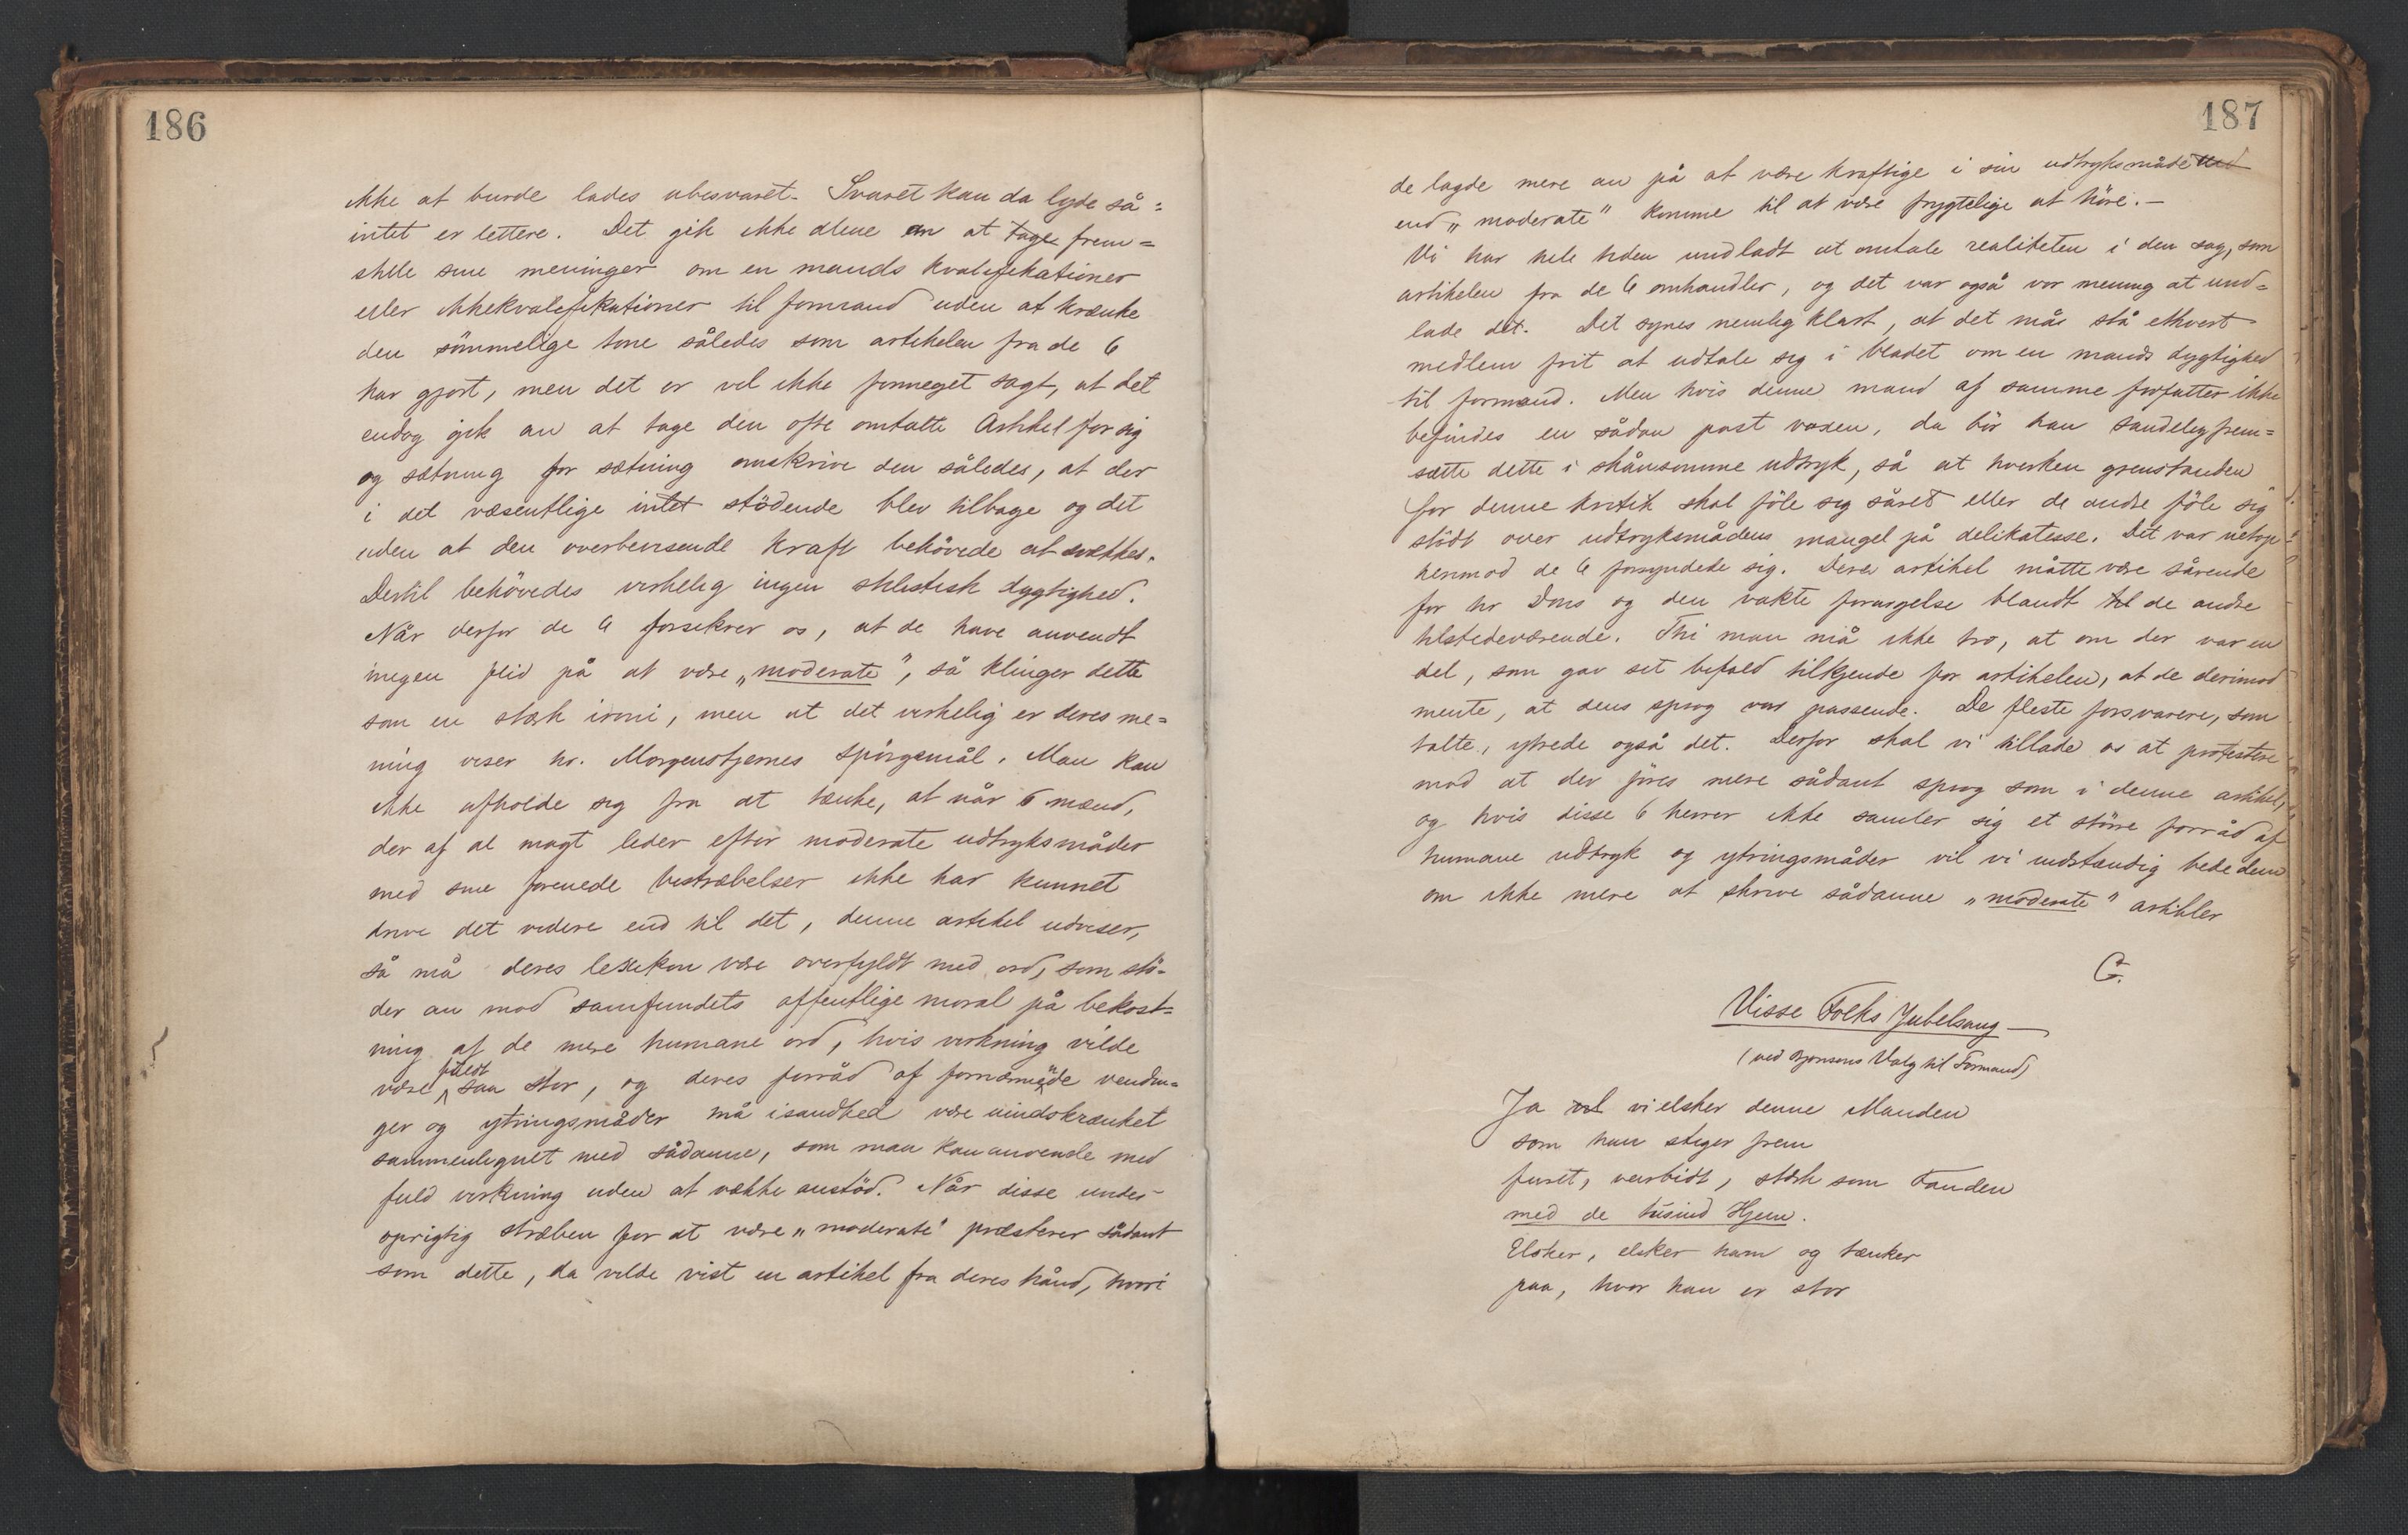 186
ikke at burde lades ubesvaret. Svaret kan da lyde så:
intet er lettere. Det gik ikke alene an at tage frem=
stille sine meninger om en mands kvalifikationer
eller ikkekvalifikationer til formand uden at krænke
den sömmelige tone således som artikelen fra de 6
har gjort, men det er vel ikke formeget sagt, at det
endog gik an at tage den ofte omtalte Artikel for sig
og sætning for sætning omskrive den således, at der
i det væsentlige intet stödende blev tilbage og det
uden at den overbevisende kraft behövede at svækkes.
Dertil behövedes virkelig ingen stilistisk dygtighed.
Når derfor de 6 forsikrer os, at de have anvendt
megen flid på at være „moderate", så klinger dette
som en stærk ironi, men at det virkelig er deres me=
ning viser hr. Morgenstjernes spörgsmål. Man kan
ikke afholde sig fra at tænke, at når 6 mænd,
der af al magt leder efter moderate udtryksmåder
med sine forenede bestræbelser ikke har kunnet
drive det videre end til det, denne artikel udviser,
så må deres lexikon være overfyldt med ord, som stö=
der an mod samfundets offentlige moral på bekost=
ning af de mere humane ord, hvis virkning vilde
fuldt
være saa stor, og deres forråd af fornærmende vendin=
ger og ytringsmåder må isandhed være uindskrænket
sammenlignet med sådanne, som man kan anvende med
fuld virkning uden at vække anstöd. Når disse under
oprigtig stræben for at være „moderate" præsterer sådant
som dette, da vilde vist en artikel fra deres hånd, hvori
187
de lagde mere an på at være kraftige i sin udtryksmåde
end „moderate" komme til at være frygtelige at höre.—
Vi har hele tiden undladt at omtale realiteten i den sag, som
artikelen fra de 6 omhandler, og det var også vor mening at und=
lade det. Det synes nemlig klart, at det må stå ethvert
medlem frit at udtale sig i bladet om en mands dygtighed
til formand. Men hvis denne mand af samme forfatter ikke
befindes en sådan post voxen, da bör han sandelig frem=
sætte dette i skånsomme udtryk, så at hverken gjenstanden
for denne kritik skal föle sig såret eller de andre föle sig
stödt over udtryksmådens mangel på delikatesse. Det var netop
herimod de 6 forsyndede sig. Deres artikel måtte være sårende
for hr Dons og den vakte forargelse blandt til de andre
tilstedeværende. Thi man må ikke tro, at om der var en
del, som gav sit bifald tilkjende for artikelen, at de derimod
mente, at dens sprog var passende. De fleste forsvarere, som
talte, ytrede også det. Derfor skal vi tillade os at protestere
mod at der föres mere sådant sprog som i denne artikel,
og hvis disse 6 herrer ikke samler sig et större forråd af
humane udtryk og ytringsmåder vil vi indstændig bede dem
om ikke mere at skrive sådanne „moderate" artikler
G.
Visse Folks Jubelsang
(ved Bjonsons Valg til Formand)
Ja vel vi elsker denne Manden
som han stiger frem
furet, veirbidt, stærk som Fanden
med de tusind Hjem.
Elsker, elsker ham og tænker
paa, hvor han er stor